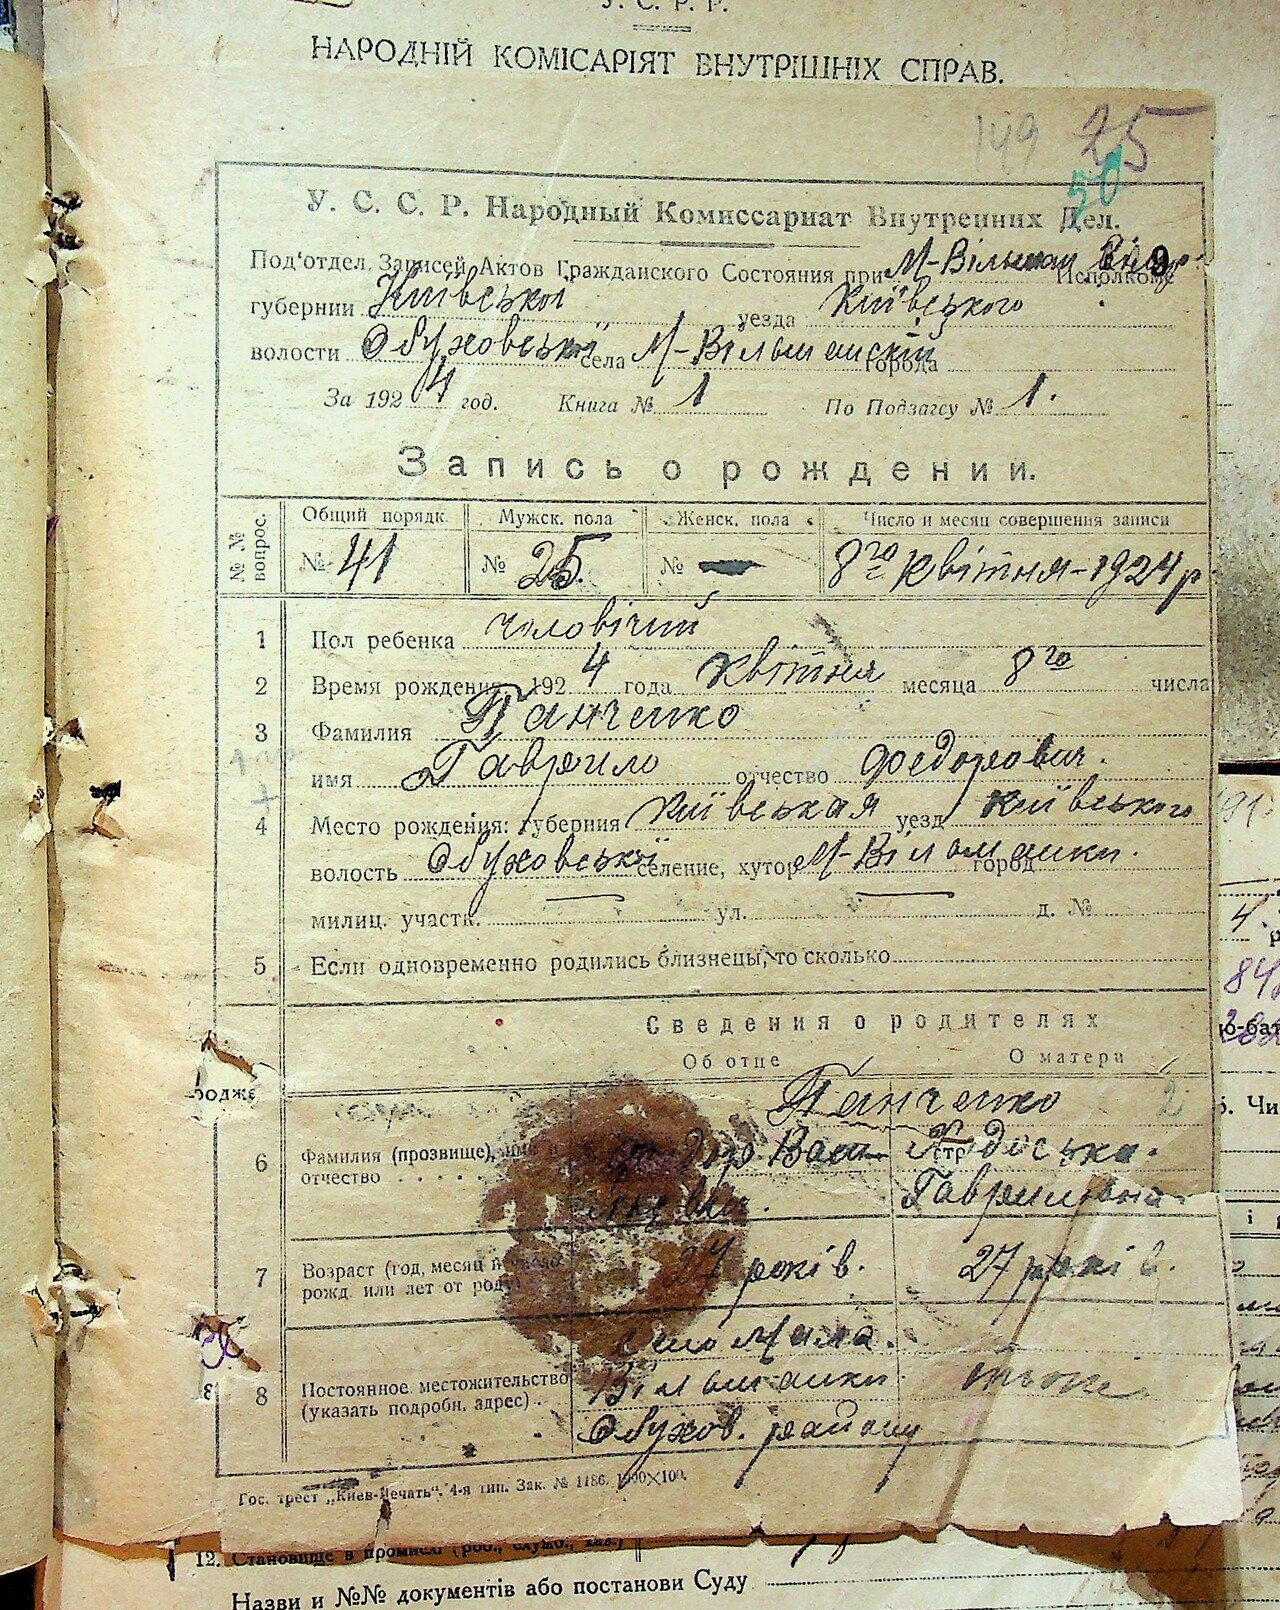 У. С. Р. Р.
НАРОДНІЙ КОМІСАРІЯТ ВНУТРІШНІХ СПРАВ.
149 25
50
У. С. С. Р. Народный Комиссариат Внутренних Дел.
9
Под'отдел Записей Актов Гражданского Состояния при М-Вільшан Исполкоме
губернии Київської уезда Київського
волости Обуховської села М-Вільшанскій города
За 1924 год. Книга № 1 По Подзагсу № 1.
Запись о рождении.
№ № вопрос. Общий порядк. Мужск. пола Женск. пола Число и месяц совершения записи
№ 41 № 25. № — 8го Квітня-1924 р.
1 Пол ребенка чоловічий
2 Время рождения 1924 года Квітня месяца 8го числа
3 Фамилия Панченко
имя Гаврило отчество Федорович.
4 Место рождения: губерния Київськая уезд Київського
волость Обуховської селение, хутор М-Вільшанки. город
милиц. участк. — ул. — д. №
5 Если одновременно родились близнецы, то сколько
Сведения о родителях
Об отце О матери
Панченко 2
6 Фамилия (прозвище), имя и
отчество . . . . .
Гавриловна
7 Возраст (год, месяц и число
рожд. или лет от роду) 27 років. 27 років.
8 Постоянное местожительство
(указать подробн, адрес) .
село Мала.
Вільшанки. тьоже
Обухов. району
Гос. трест „Киев-Печать“. 4-я тип. Зак. № 1186. 1000×100.
12. Становище в промислі (роб., служб., хаз.)
Назви и №№ документів або постанови Суду